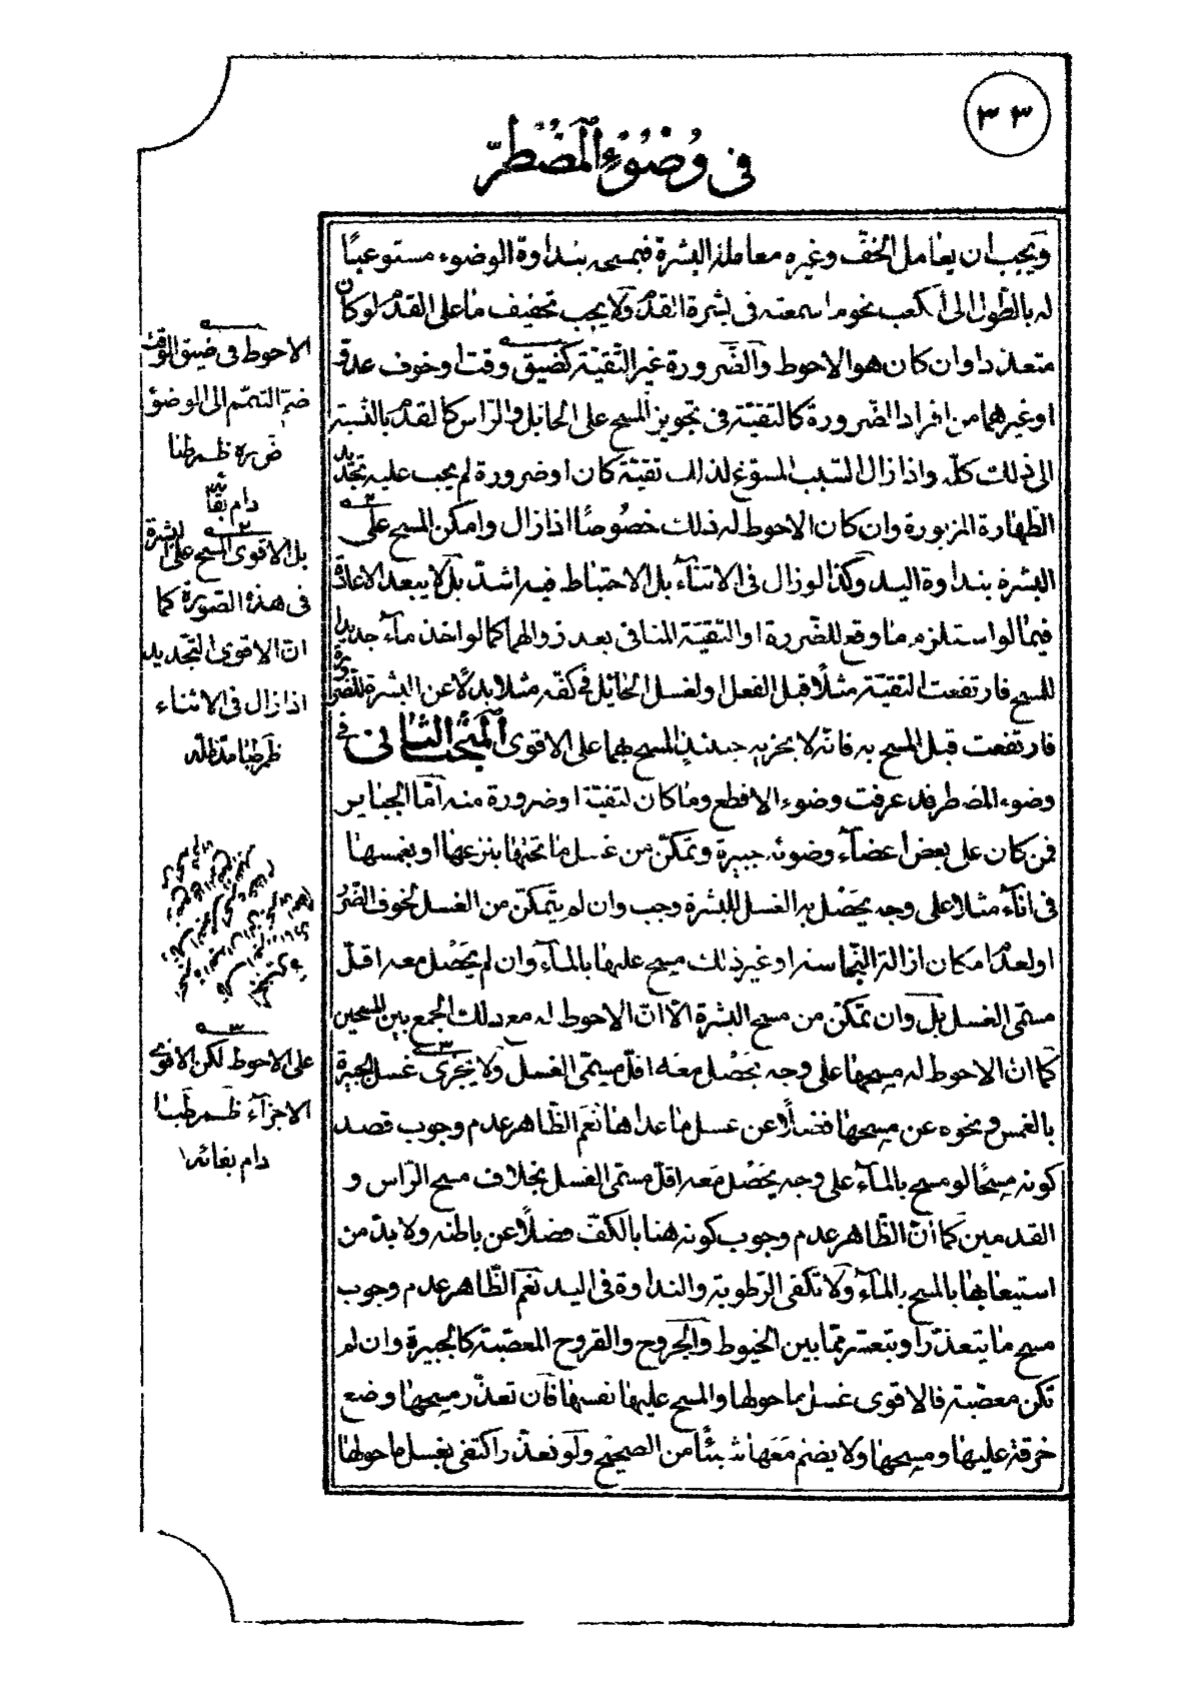 ٣٣
في وُضُوءِ المُضْطَرّ
ويجب ان يعامل الخفّ وغيره معاملة البشرة فيمسحه بنداوة الوضوء مستوعبًا
له بالطّول الى الكعب نحو ما سمعته في بشرة القدم ولا يجب تخفيف ما على القدم لو كان
متعدّدا وان كان هو الاحوط والضّرورة غير التّقيّة كضيق وقت او خوف عدوّ
او غيرهما من افراد الضّرورة كالتقيّة في تجويز المسح على الحايل والرّاس كالقدم بالنّسبة
الى ذلك كلّه واذا زال السّبب المسوّغ لذلك تقيّة كان او ضرورة لم يجب عليه تجديد
الطّهارة المزبورة وان كان الاحوط له ذلك خصُوصًا اذا زال وامكن المسح على
البشرة بنداوة اليد وكذا لو زال في الاثنآء بل الاحتياط فيه اشدّ بل لا يبعد الاعادة
فيما لو استلزم ما وقع للضّرورة او التقيّة المنافى بعد زوالهما كما لو اخذ مآء جديدا
للمسح فارتفعت التقيّة مثلًا قبل الفعل او لغسل الحايل في كفّه مثلا بدلًا عن البشرة للضّرورة
فارتفعت قبل المسح به فانّه لا يجزيه حينئذٍ المسح بهما على الاقوى المبحث الثانى في
وضوء المضطر قد عرفت وضوء الاقطع وما كان لتقيّة او ضرورة منه امّا الجباير
فمن كان على بعض اعضآء وضوئه جبيرة وتمكّن من غسل ما تحتها بنزعها او بغمسها
في انآء مثلا على وجه يحصُل به الغسل للبشرة وجب وان لم يتمكّن من الغسل لخوف الضّرر
او لعدم امكان ازالة النّجاسة او غير ذلك مسح عليها بالمآء وان لم يحصُل معه اقلّ
مسمّى الغسل بل وان تمكّن من مسح البشرة الّا انّ الاحوط له مع ذلك الجمع بين المسحين
كما انّ الاحوط له مسحها على وجه يحصُل معَه اقلّ مسمّى الغسل ولا يجزى غسل الجبيرة
بالغمس ونحوه عن مسحها فضلًا عن غسل ما عداها نعَم الظّاهر عدم وجوب قصد
كونه مسحًا لو مسح بالمآء على وجه يحصُل مَعه اقلّ مسمّى الغسل بخلاف مسح الرّاس و
القدمين كما انّ الظّاهر عدم وجوب كونه هنا بالكفّ فضلًا عن باطنه ولا بدّ من
استيعابها بالمسح بالمآء ولا تكفى الرّطوبة والنداوة في اليد نعَم الظّاهر عدم وجوب
مسح ما يتعذّر او يتعسّر ممّا بين الخيوط والجروح والقروح المعصّبة كالجبيرة وان لم
تكن معصّبة فالاقوى غسل ما حولها والمسح عليها نفسها فان تعذّر مسحها وضع
خرقة عليها ومسحها ولا يضم مَعَها شيئًا من الصّحيح ولو تعذّر اكتفى بغسل ما حولها
الاحوط في ضيق الوقت
ضمّ التيمّم الى الوضوء
دام بقآ
٢
بل الاقوى المسح على البشرة
في هذه الصّورة كما
انّ الاقوى التّجديد
اذا زال في الاثناء
٣
على الاحوط لكن الاقوى
الاجزآء
دام بقائه